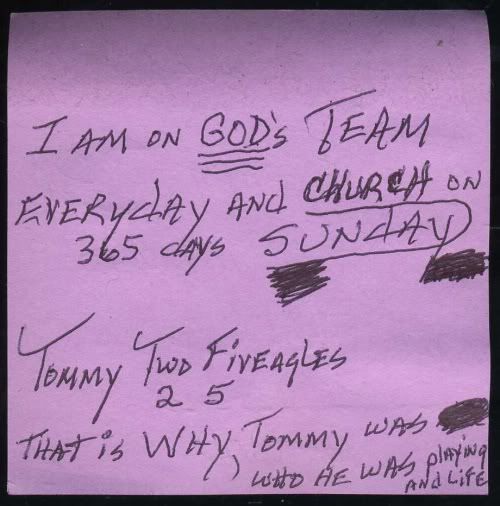 I AM ON GOD's TEAM
EVERYdAY AND CHURCH ON
365 dAYS SUNdAY
TOMMY TWO FiVEAGLES
2 5
THAT is WHY, TOMMY WAS
WHO HE WAS plAYiNG
AND LiFE